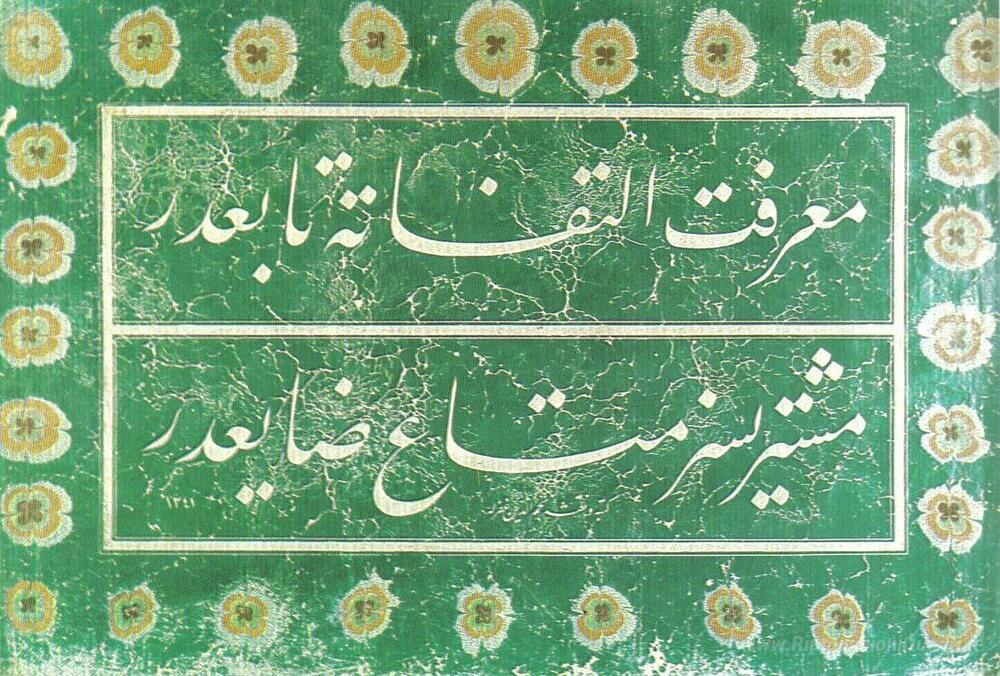 معرفت التفاته تابعدر
مشتريسز متاع ضايعدر
١٣٤١